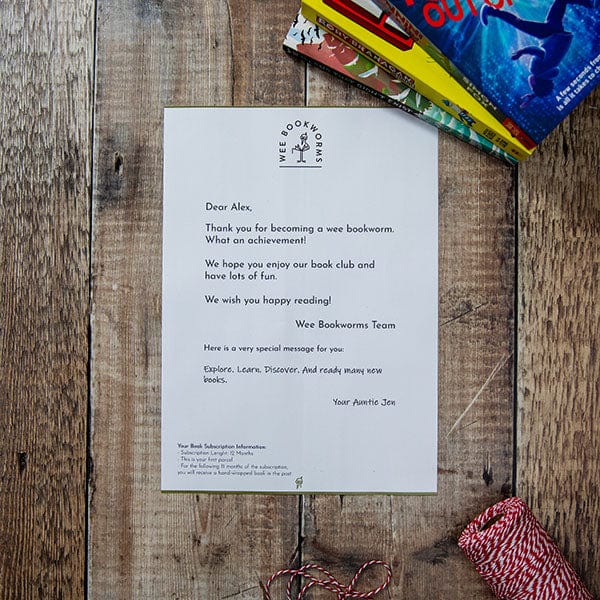 OUT OF
A few seconds from
is all it takes to ch
WEE BOOKWORMS
Dear Alex,
Thank you for becoming a wee bookworm.
What an achievement!
We hope you enjoy our book club and
have lots of fun.
We wish you happy reading!
Wee Bookworms Team
Here is a very special message for you:
Explore. Learn. Discover. And ready many new
books.
Your Auntie Jen
Your Book Subscription Information:
- Subscription Lenght: 12 Months
- This is your first parcel
- For the following 11 months of the subscription,
you will receive a hand-wrapped book in the post.